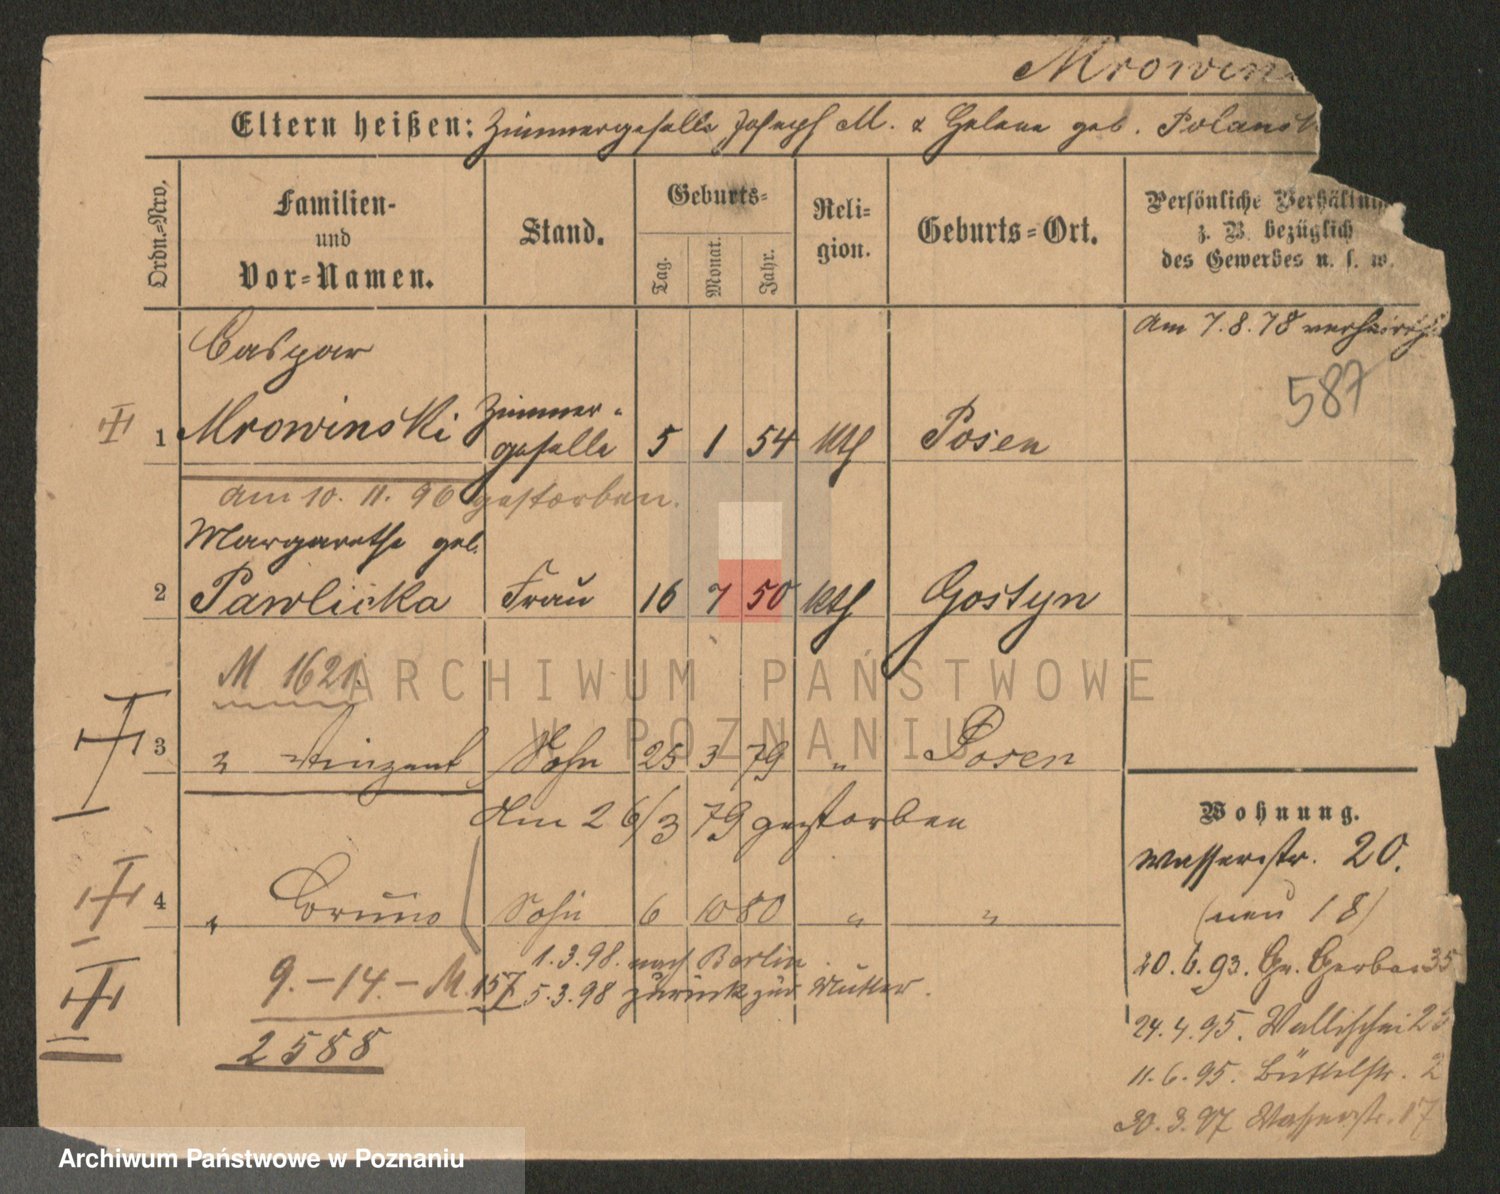 Mrowins
Eltern heißen: Zimmergeselle Joseph M. & Helene geb. Polansk
Ordn.-Nro.
Familien-
und
Vor-Namen.
Stand.
Geburts-
Tag.
Monat.
Jahr.
Reli-
gion.
Geburts-Ort.
Persönliche Verhältni
z. B. bezüglich
des Gewerbes u. s. w.
Caspar
am 7.8.78 verheirath
587
1 Mrowinski Zimmer-
geselle 5 1 54 kth Posen
am 10. 11. 96 gestorben.
Margarethe geb.
2 Pawlicka Frau 16 7 50 kth Gostyn
M 1621.
3 " Vinzent Sohn 25 3 79 " Posen
Am 26/3 79 gestorben
Wohnung.
Wasserstr. 20.
(neu 18)
4 " Bruno Sohn 6 10 80 " "
1.3.98. nach Berlin.
20.6.93. Gr. Gerber 35
9.-14.- M. 157 5.3.98 zurück zur Mutter.
24.4.95. Wallischei 23
2588
11.6.95. Büttelstr. 2
30.3.97 Wasserstr. 17
ARCHIWUM PAŃSTWOWE
W POZNANIU
Archiwum Państwowe w Poznaniu